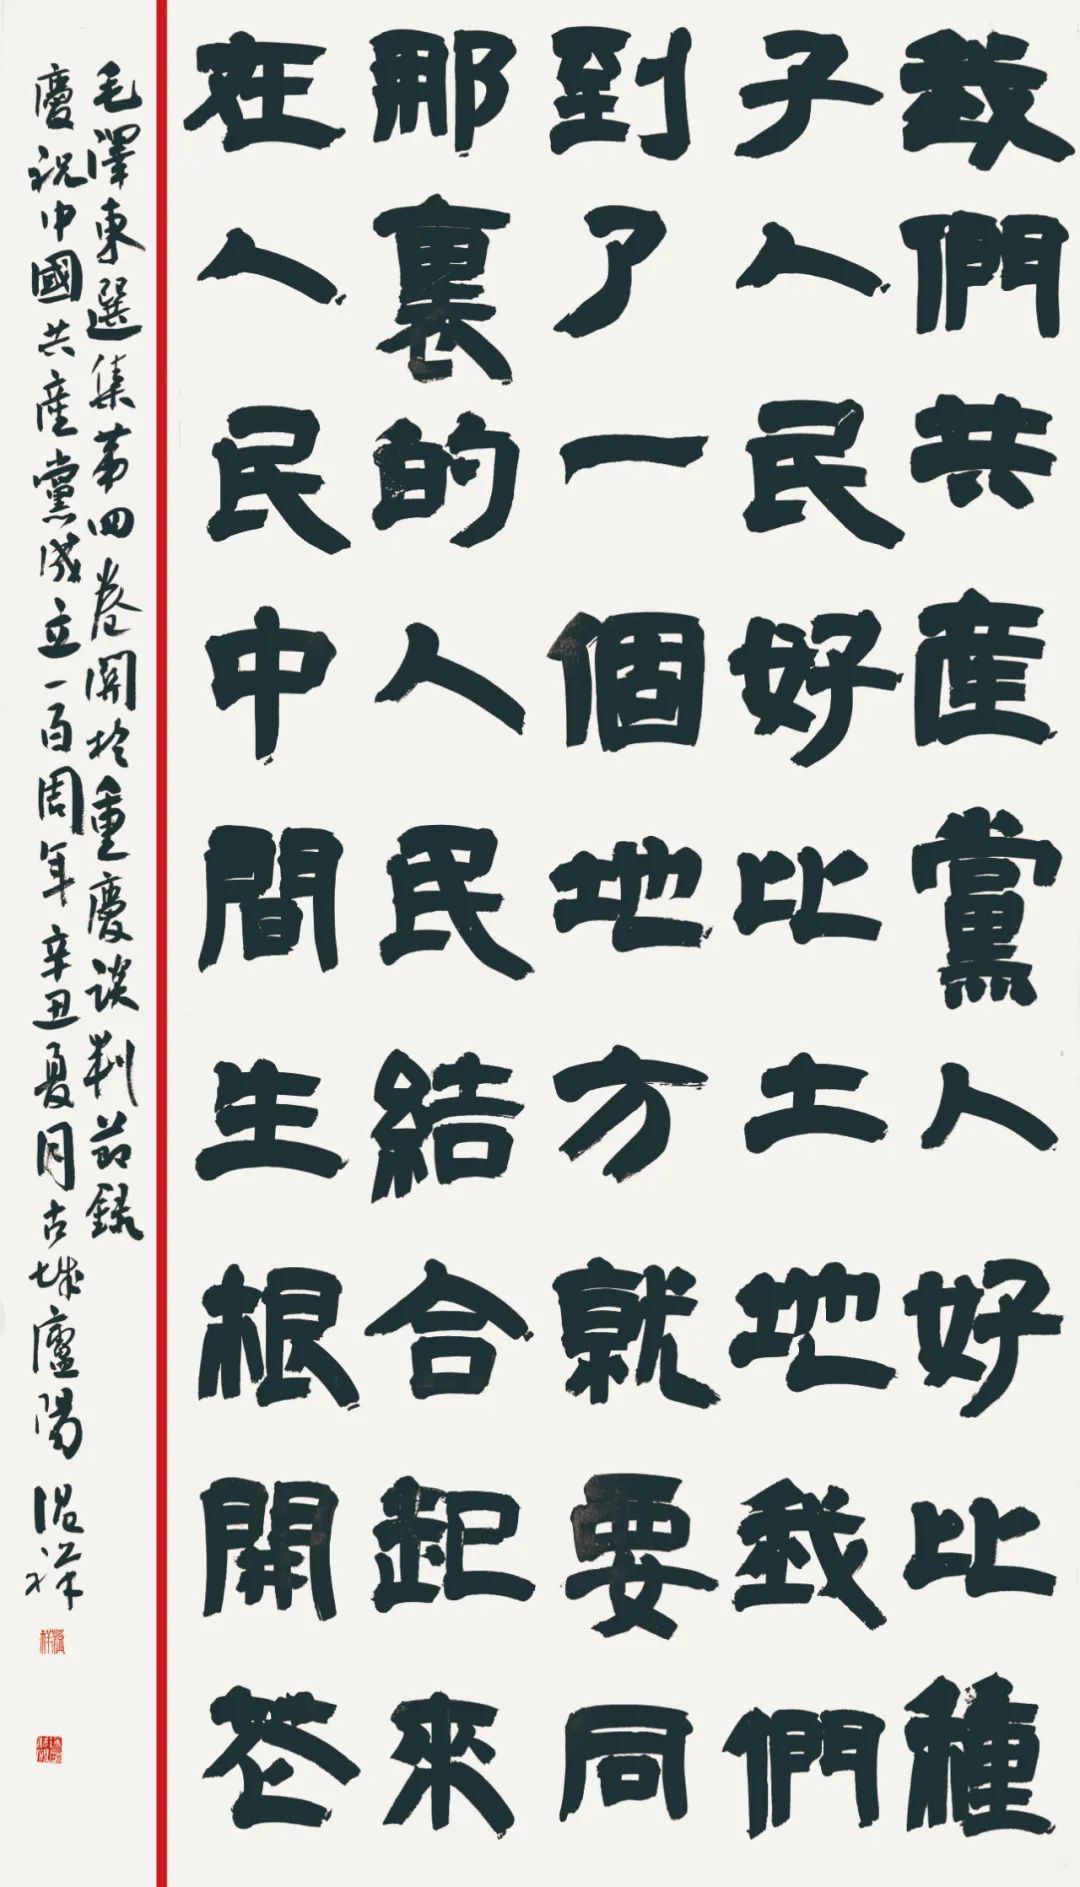 我們共產黨人好比種
子人民好比土地我們
到了一個地方就要同
那裏的人民結合起來
在人民中間生根開花
毛澤東選集第四卷關於重慶談判節錄
慶祝中國共產黨成立一百周年辛丑夏月古城廬陽溫祥